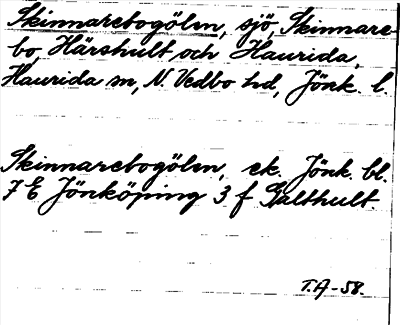 Skinnarebogölen, sjö, Skinnare-
bo, Härshult och Haurida,
Haurida sn, N. Vedbo hd, Jönk. l.
Skinnarebogölen, ek. Jönk. bl.
7 E Jönköping 3 f Galthult.
T.A-58.